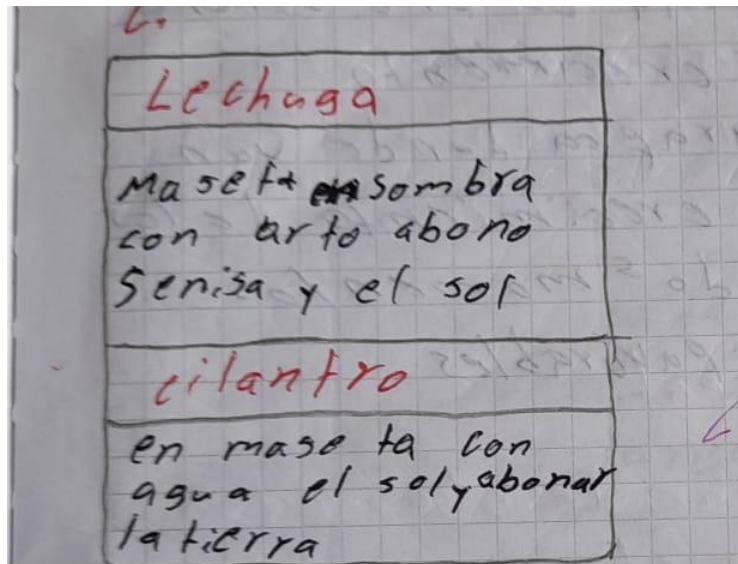 Lechuga
Maseta en sombra
con arto abono
Senisa y el sol
cilantro
en maseta con
agua el sol y abonar
la tierra